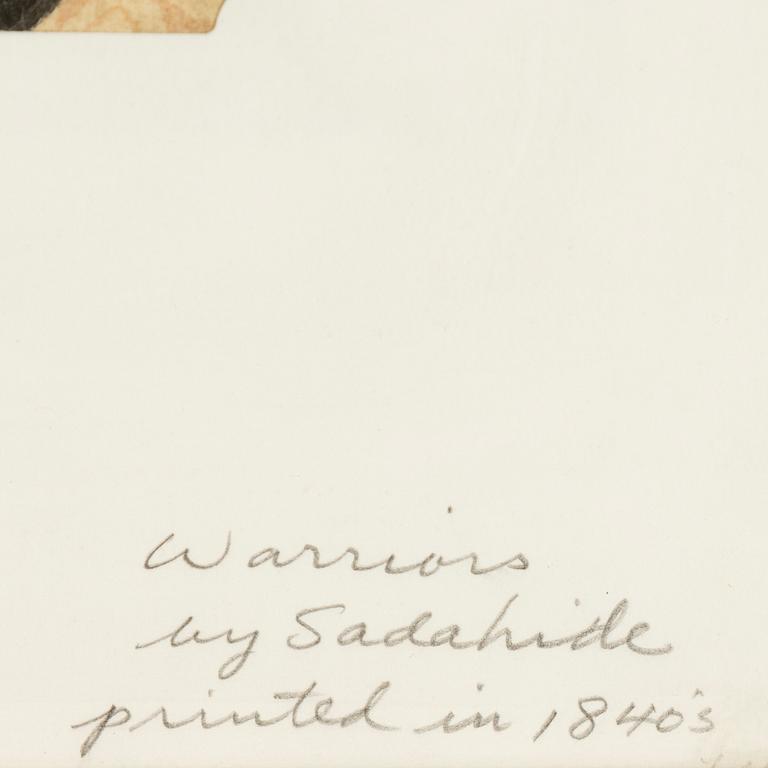 Warriors
by Sadahide
printed in 1840's